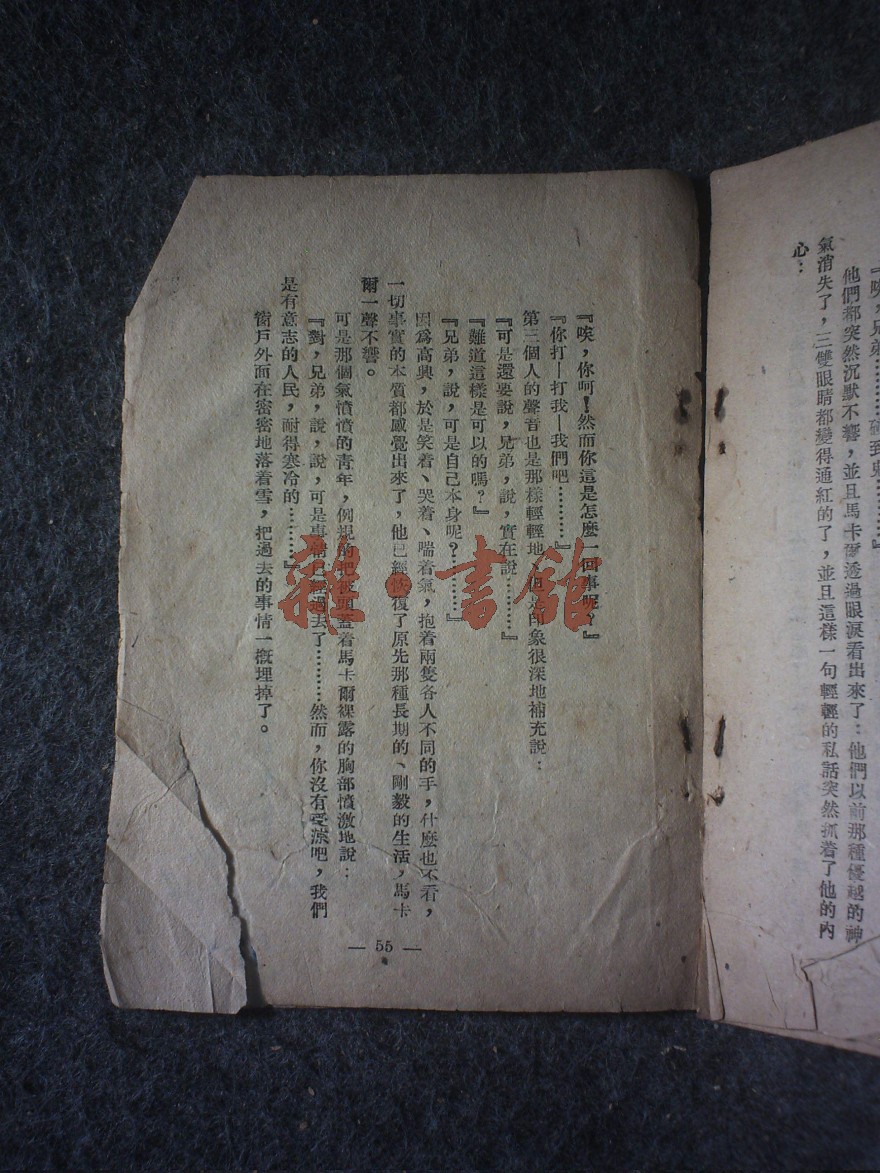 『唉，兄弟………碰到鬼………』
他們都突然沉默不響，並且馬卡爾透過眼淚看出來了：他們以前那種優越的神
氣消失了，三雙眼睛都變得通紅的了，並且這樣一句輕輕的私話突然抓着了他的內
心：
『唉，你呵！然而你這是怎麼一回事呢？』
『你打—打我—我們吧………』
第三個人的聲音也是那樣輕輕地、但是印象很深地補充說：
『可是還要說，兄弟，說，實在說………』
『難道這樣是可以的嗎？』
『兄弟，說，可是自己本身呢？………』
因爲高興，於是笑着、哭着、喘着氣，抱着兩隻各人不同的手，什麼也不看，
一切事實的本質都感覺出來了，他已經恢覆了原先那種長期的、剛毅的生活，馬卡
爾一聲不響。
可是那個氣憤憤的青年，例規的把被頭蓋着馬卡爾裸露的胸部憤激地說：
『對，兄弟，說，說，可是事情已經過去了………然而，你沒有受涼吧，我們
是有意志的人民，耐得寒冷的………』
窗戶外面在密密地落着雪，把過去的事情一概埋掉了。
— 55 —
雜·書館